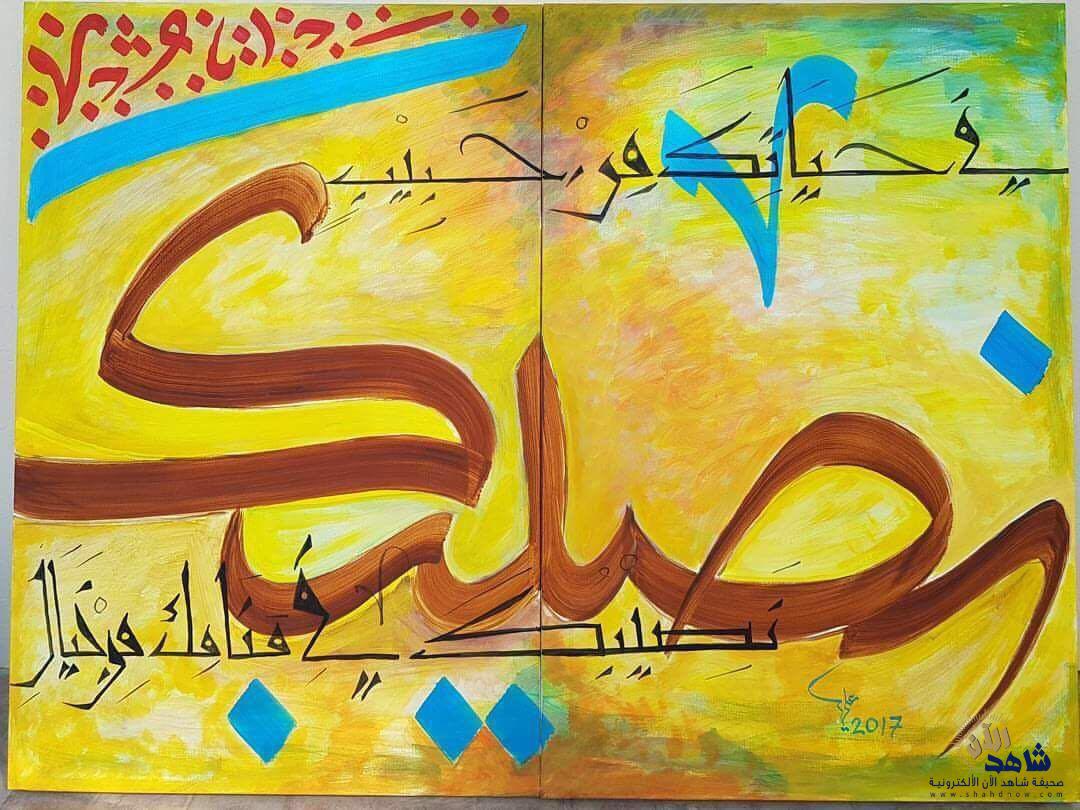 نصيبك
في حَيَاتِكَ مِنْ حَبِيبٍ
نَصِيبُكَ في مَنَامِكَ مِنْ خَيَالِ
علي 2017
شاهد الآن
صحيفة شاهد الآن الألكترونية
www.shahdnow.com